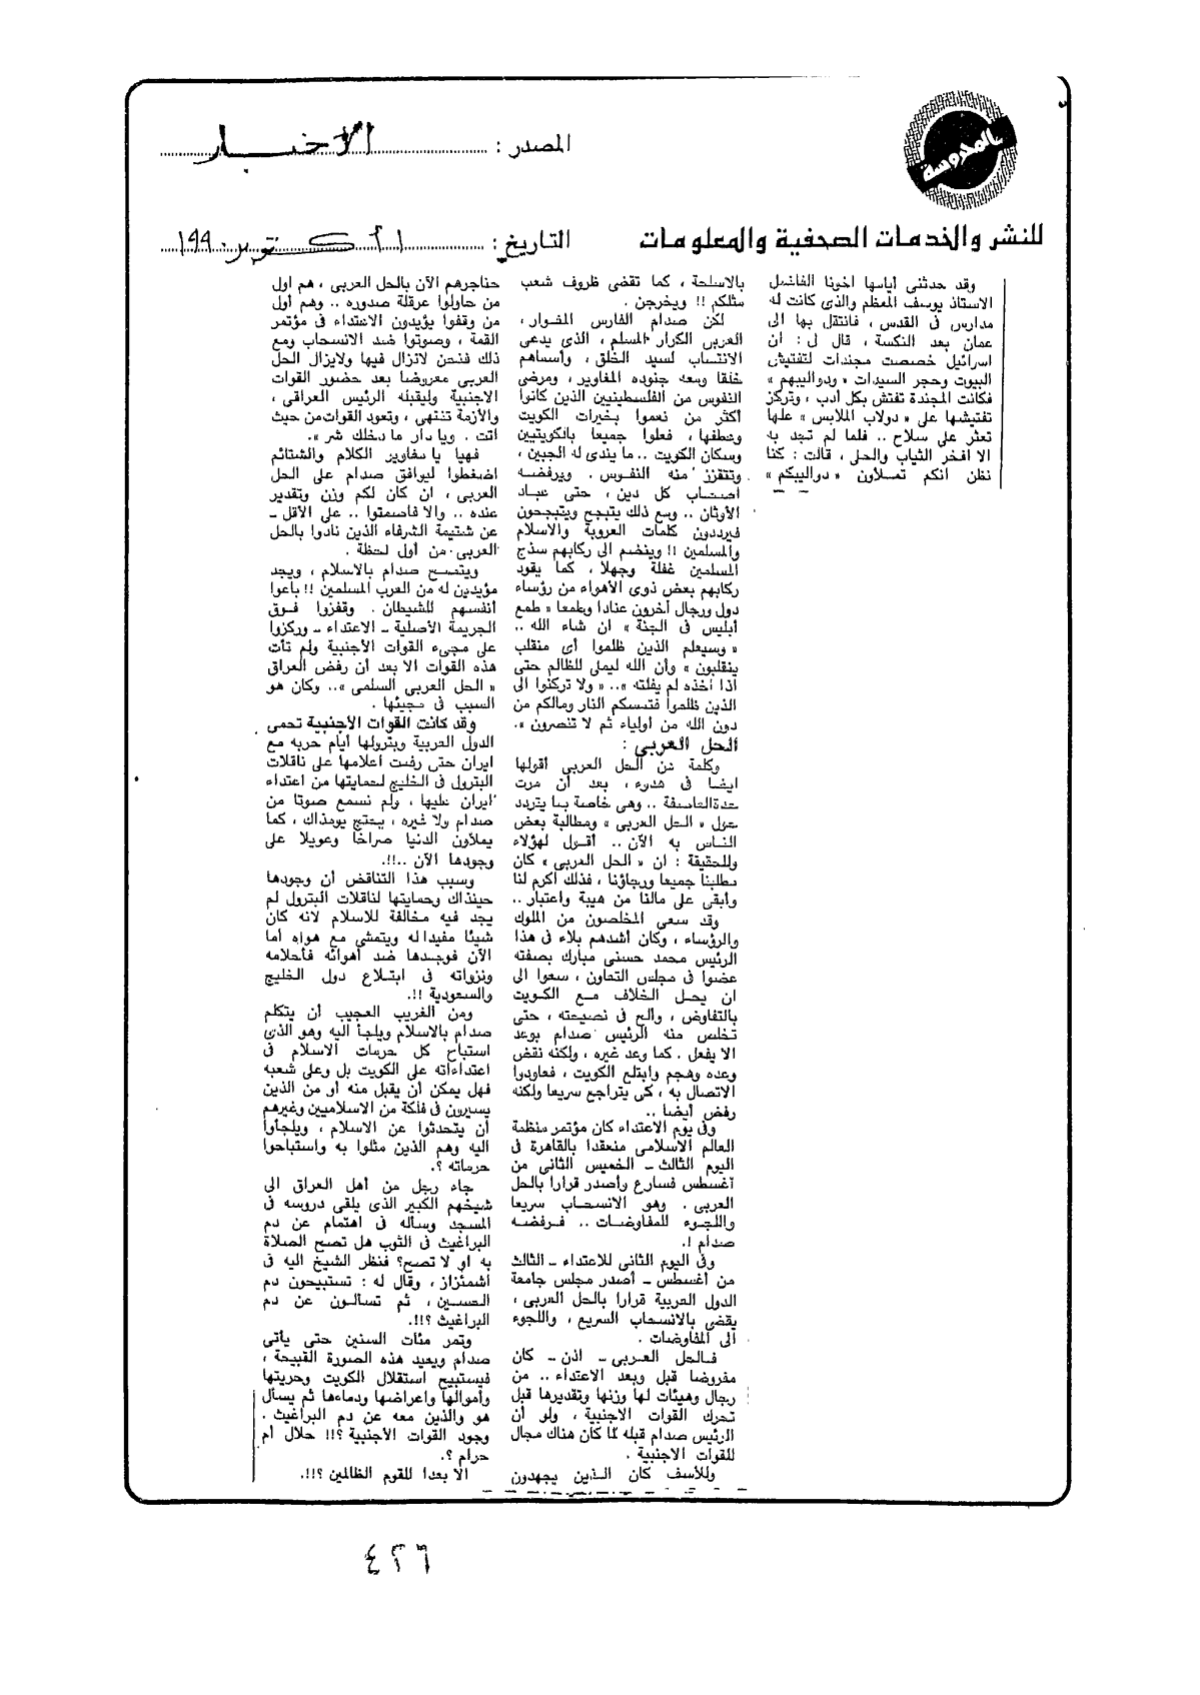 المصدر : الأخبار
بالمحروسة
للنشر والخدمات الصحفية والمعلومات
التاريخ : ٢١ أكتوبر ١٩٩٠
وقد حدثنى أيامها اخونا الفاضل
الاستاذ يوسف المعظم والذى كانت له
مدارس فى القدس ، فانتقل بها الى
عمان بعد النكسة ، قال لى : ان
اسرائيل خصصت مجندات لتفتيش
البيوت وحجر السيدات « ودواليبهم »
فكانت المجندة تفتش بكل أدب ، وتركز
تفتيشها على « دولاب الملابس » علها
تعثر على سلاح .. فلما لم تجد به
الا افخر الثياب والحلى ، قالت : كنا
نظن أنكم تملاون « دواليبكم »
بالاسلحة ، كما تقضى ظروف شعب
مثلكم !! ويخرجن .
لكن صدام الفارس المغوار ،
العربى الكرار المسلم ، الذى يدعى
الانتساب لسيد الخلق ، وأسماهم
خلقا ومعه جنوده المغاوير ، ومرضى
النفوس من الفلسطينيين الذين كانوا
أكثر من نعموا بخيرات الكويت
وعطفها ، فعلوا جميعا بالكويتيين
وسكان الكويت .. ما يندى له الجبين ،
وتتقزز منه النفوس . ويرفضه
اصحاب كل دين ، حتى عباد
الأوثان .. ومع ذلك يتبجح ويتبجحون
فيرددون كلمات العروبة والاسلام
والمسلمين !! وينضم الى ركابهم سذج
المسلمين غفلة وجهلا ، كما يقود
ركابهم بعض ذوى الأهواء من رؤساء
دول ورجال أخرون عنادا وطمعا « طمع
أبليس فى الجنة » ان شاء الله ..
« وسيعلم الذين ظلموا أى منقلب
ينقلبون » وأن الله ليملى للظالم حتى
اذا أخذه لم يفلته » .. « ولا تركنوا الى
الذين ظلموا فتمسكم النار ومالكم من
دون الله من أولياء ثم لا تنصرون » .
الحل العربى :
وكلمة عن الحل العربى أقولها
ايضا فى هدوء ، بعد أن مرت
حدة العاصفة .. وهى خاصة بما يتردد
حول « الحل العربى » ومطالبة بعض
الناس به الآن .. أقول لهؤلاء
وللحقيقة : ان « الحل العربى » كان
مطلبنا جميعا ورجاؤنا ، فذلك أكرم لنا
وأبقى على مالنا من هيبة واعتبار ..
وقد سعى المخلصون من الملوك
والرؤساء ، وكان أشدهم بلاء فى هذا
الرئيس محمد حسنى مبارك بصفته
عضوا فى مجلس التعاون ، سعوا الى
ان يحل الخلاف مع الكويت
بالتفاوض ، وألح فى نصيحته ، حتى
تخلص منه الرئيس صدام بوعد
الا يفعل . كما وعد غيره ، ولكنه نقض
وعده وهجم وابتلع الكويت ، فعاودوا
الاتصال به ، كى يتراجع سريعا ولكنه
رفض أيضا ..
وفى يوم الاعتداء كان مؤتمر منظمة
العالم الاسلامى منعقدا بالقاهرة فى
اليوم الثالث - الخميس الثانى من
أغسطس فسارع وأصدر قرارا بالحل
العربى . وهو الانسحاب سريعا
واللجوء للمفاوضات .. فرفضه
صدام !.
وفى اليوم الثانى للاعتداء - الثالث
من أغسطس - أصدر مجلس جامعة
الدول العربية قرارا بالحل العربى ،
يقضى بالانسحاب السريع ، واللجوء
الى المفاوضات .
فالحل العربى - اذن - كان
مفروضا قبل وبعد الاعتداء .. من
رجال وهيئات لها وزنها وتقديرها قبل
تحرك القوات الاجنبية ، ولو أن
الرئيس صدام قبله لما كان هناك مجال
للقوات الاجنبية .
وللأسف كان الذين يجهدون
حناجرهم الآن بالحل العربى ، هم أول
من حاولوا عرقلة صدوره .. وهم أول
من وقفوا يؤيدون الاعتداء فى مؤتمر
القمة ، وصوتوا ضد الانسحاب ومع
ذلك فنحن لانزال فيها ولايزال الحل
العربى معروضا بعد حضور القوات
الاجنبية وليقبله الرئيس العراقى ،
والأزمة تنتهى ، وتعود القوات من حيث
أتت . ويا دار ما دخلك شر » .
فهيا يا مغاوير الكلام والشتائم
اضغطوا ليوافق صدام على الحل
العربى ، ان كان لكم وزن وتقدير
عنده .. والا فاصمتوا .. على الأقل -
عن شتيمة الشرفاء الذين نادوا بالحل
العربى من أول لحظة .
ويتمسح صدام بالاسلام ، ويجد
مؤيدين له من العرب المسلمين !! باعوا
أنفسهم للشيطان . وقفزوا فوق
الجريمة الأصلية - الاعتداء - وركزوا
على مجىء القوات الأجنبية ولم تأت
هذه القوات الا بعد أن رفض العراق
« الحل العربى السلمى » .. وكان هو
السبب فى مجيئها .
وقد كانت القوات الأجنبية تحمى
الدول العربية وبترولها أيام حربه مع
ايران حتى رفعت أعلامها على ناقلات
البترول فى الخليج لحمايتها من اعتداء
ايران عليها ، ولم نسمع صوتا من
صدام ولا غيره ، يحتج يومذاك ، كما
يملأون الدنيا صراخا وعويلا على
وجودها الآن ..!!.
وسبب هذا التناقض أن وجودها
حينذاك وحمايتها لناقلات البترول لم
يجد فيه مخالفة للاسلام لانه كان
شيئا مفيدا له ويتمشى مع هواه أما
الآن فوجدها ضد أهوائه فأحلامه
ونزواته فى ابتلاع دول الخليج
والسعودية !!.
ومن الغريب العجيب أن يتكلم
صدام بالاسلام ويلجأ اليه وهو الذى
استباح كل حرمات الاسلام فى
اعتداءاته على الكويت بل وعلى شعبه
فهل يمكن أن يقبل منه أو من الذين
يسيرون فى فلكة من الاسلاميين وغيرهم
أن يتحدثوا عن الاسلام ، ويلجأوا
اليه وهم الذين مثلوا به واستباحوا
حرماته ؟.
جاء رجل من أهل العراق الى
شيخهم الكبير الذى يلقى دروسه فى
المسجد وسأله فى اهتمام عن دم
البراغيث فى الثوب هل تصح الصلاة
به أو لا تصح؟ فنظر الشيخ اليه فى
اشمئزاز ، وقال له : تستبيحون دم
الحسين ، ثم تسألون عن دم
البراغيث ؟!!.
وتمر مئات السنين حتى يأتى
صدام ويعيد هذه الصورة القبيحة ،
فيستبيح استقلال الكويت وحريتها
وأموالها واعراضها ودماءها ثم يسأل
هو والذين معه عن دم البراغيث .
وجود القوات الأجنبية ؟!! حلال أم
حرام ؟.
الا بعدا للقوم الظالمين ؟!!.
٤٢٦